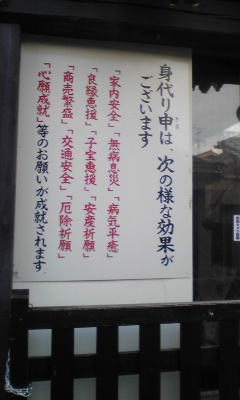 身代り申は、次の様な効果が
ございます
「家内安全」「無病息災」「病気平癒」
「良縁恵援」「子宝恵援」「安産祈願」
「商売繁盛」「交通安全」「厄除祈願」
「心願成就」等のお願いが成就されます。